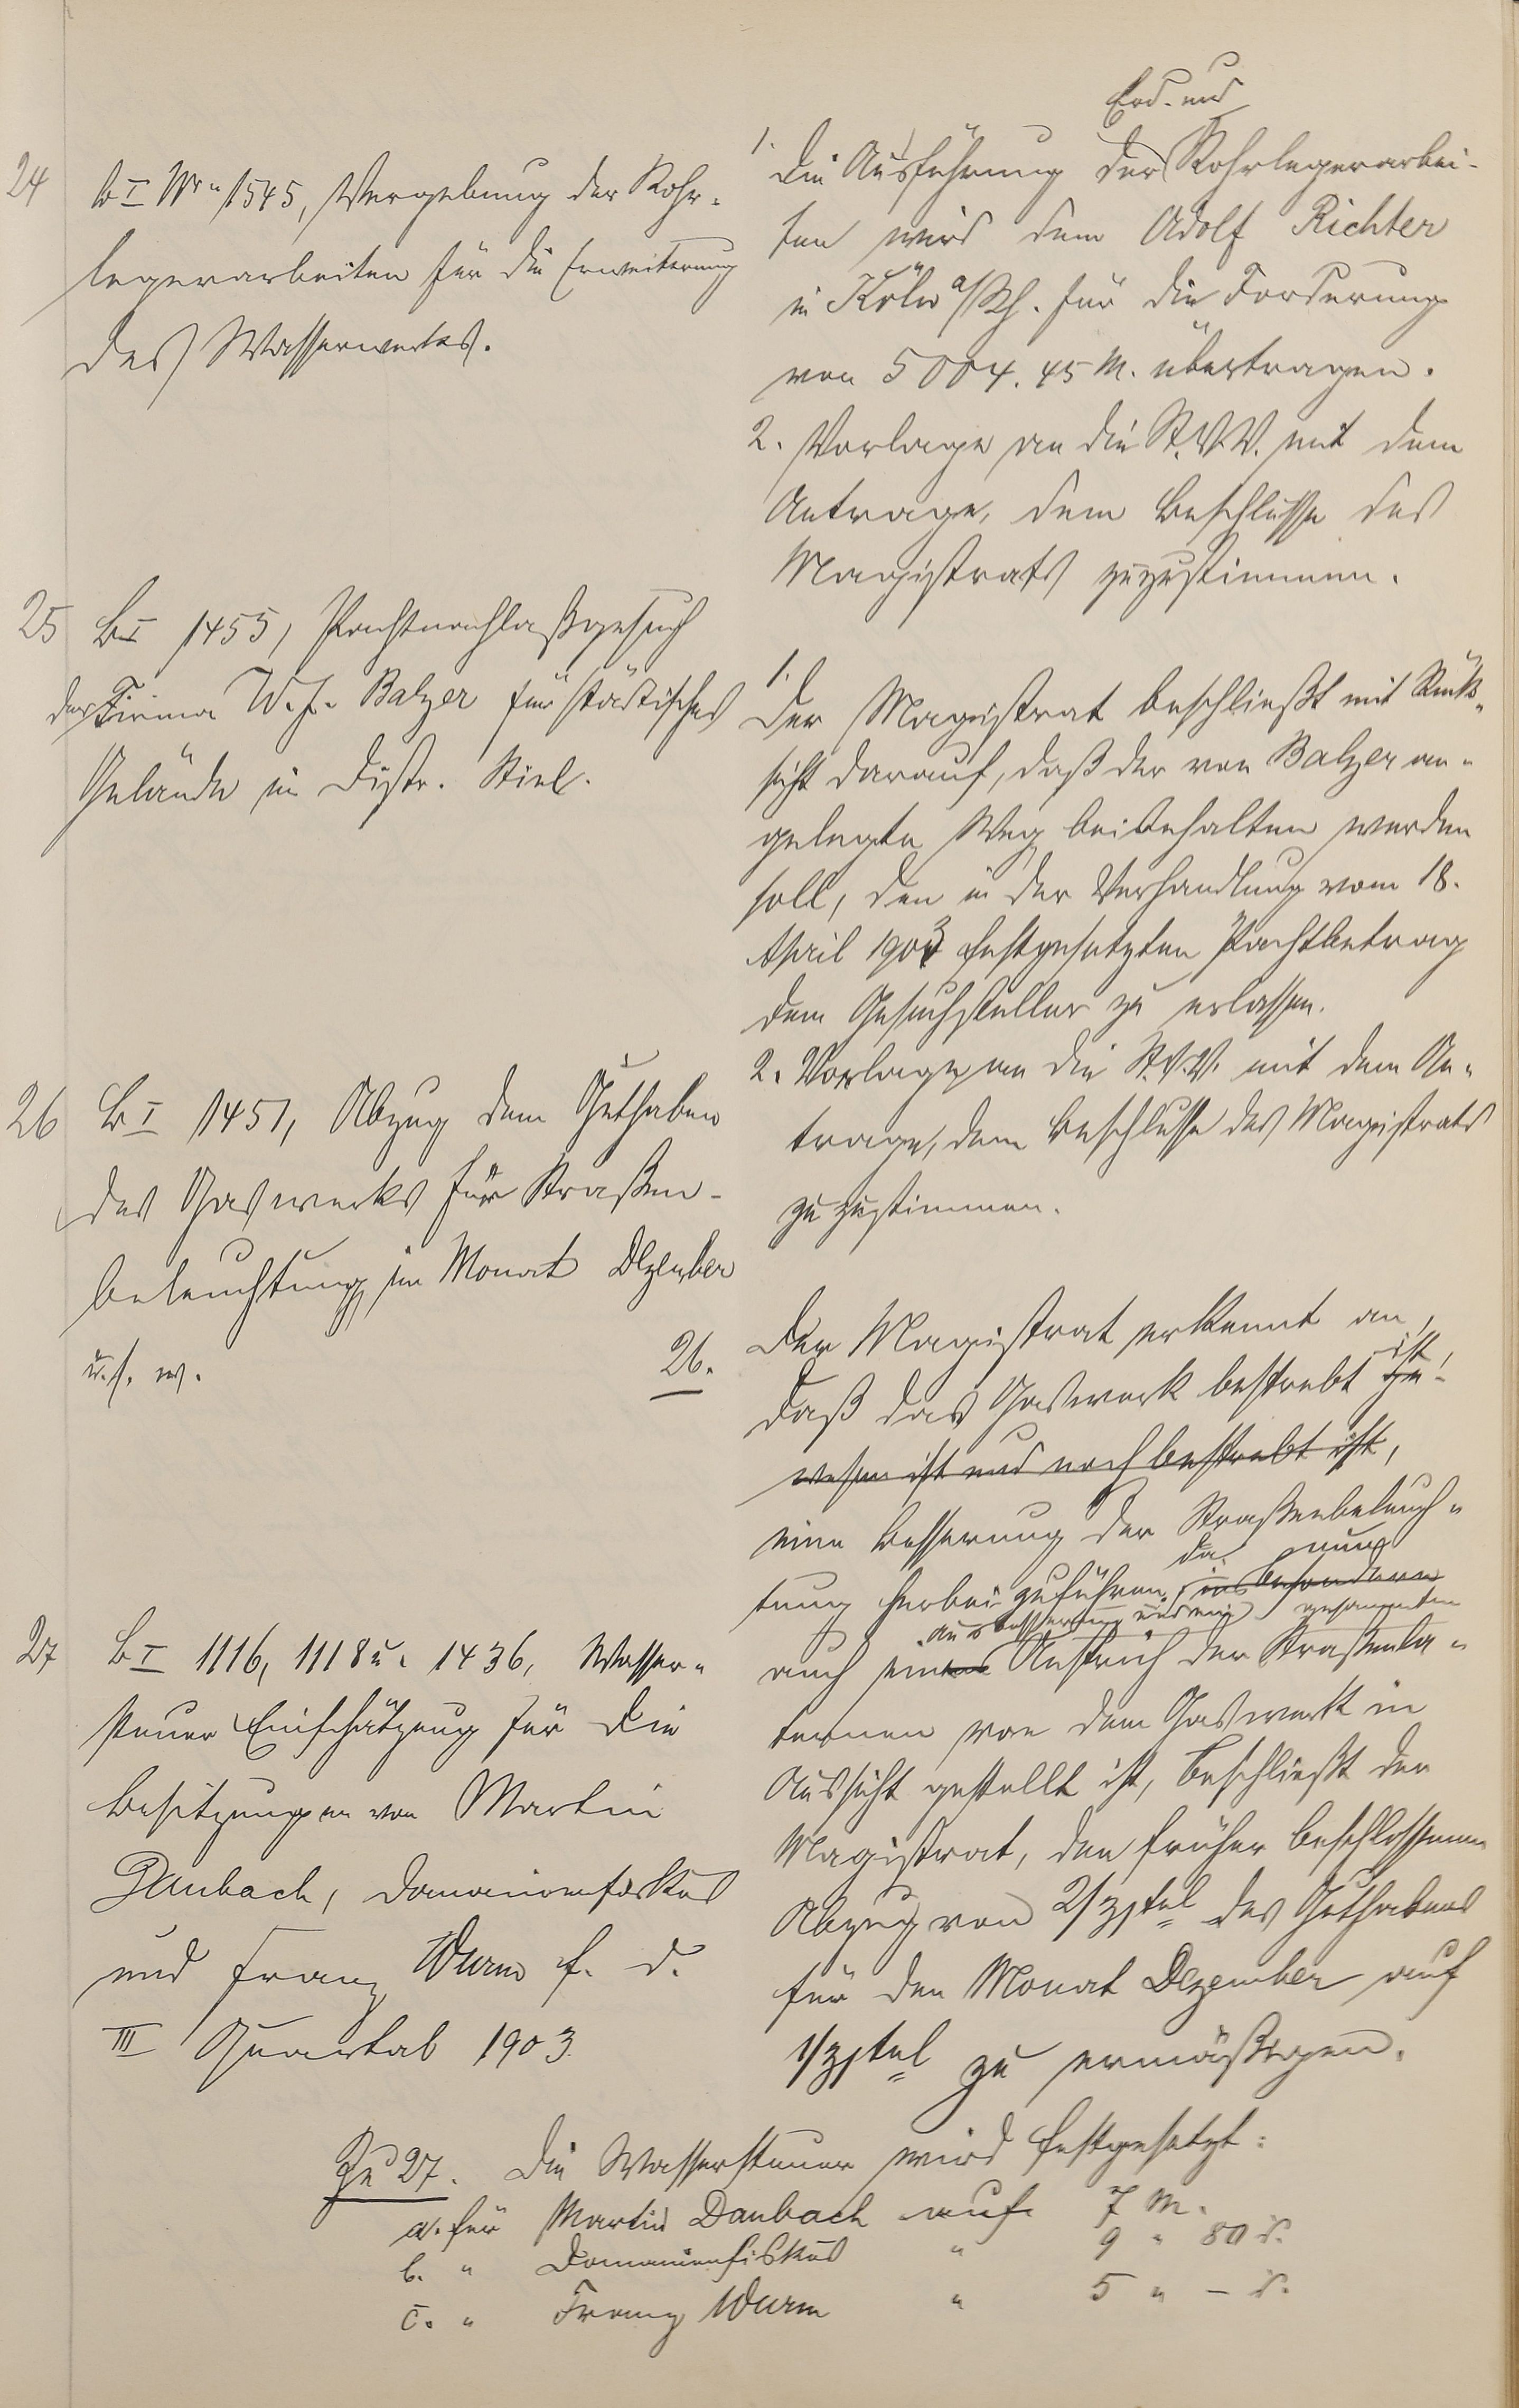 24
B I Nr. 1545, Vergebung der Rohr-
legerarbeiten für die Erweiterung
des Wasserwerks.
Erd- und
1. Die Ausführung der Rohrlegerarbei-
ten wird dem Adolf Richter
in Köln a/Rh. für die Forderung
von 5004.45 M. übertragen.
2. Vorlage an die St.V.V. mit dem
Antrage, dem Beschlusse des
Magistrats zuzustimmen.
25
B I 1455, Pachtnachlaßgesuch
der Firma W. F. Balzer für städtisches
Gelände in Distr. Stiel.
1.
Der Magistrat beschließt mit Rück-
sicht darauf, daß der von Balzer an-
gelegte Weg beibehalten werden
soll, den in der Verhandlung vom 18.
April 1903 festgesetzten Pachtbetrag
dem Gesuchsteller zu erlassen.
2. Vorlage an die St.V.V. mit dem An-
trage, dem Beschlusse des Magistrats
zuzustimmen.
26
B I 1451, Abzug dem Guthaben
des Gaswerks für Straßen-
beleuchtung im Monat Dezember
u.s.w.
26.
Der Magistrat erkennt an,
daß das Gaswerk bestrebt ist ge-
wesen ist und noch bestrebt ist,
eine Besserung der Straßenbeleuch-
tung herbei zuführen, da nun insbesondere
Ausbesserung und ein gesammten
auch einen Anstrich der Straßenla-
ternen von dem Gaswerk in
Aussicht gestellt ist, beschließt der
Magistrat, den früher beschlossenen
Abzug von 2/3tel des Guthabens
für den Monat Dezember auf
1/3tel zu ermäßigen.
27
B I 1116, 1118 u. 1436, Wasser-
steuer Einschätzung für die
Besitzungen von Martin
Daubach, Domainenfiskus
und Franz Wurm f. d.
III Quartal 1903.
Zu 27. Die Wassersteuer wird festgesetzt:
a. für Martin Daubach auf 7 M.
b. " Domainenfiskus " 9 " 80 d.
c. " Franz Wurm " 5 " – d.